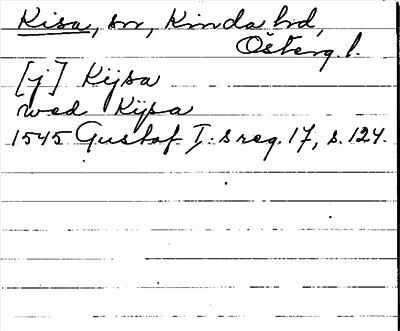 Kisa, sn, Kinda hd,
Österg. l.
[j] Kijsa
wed Kijsa
1545 Gustaf I:s reg. 17, s. 124.